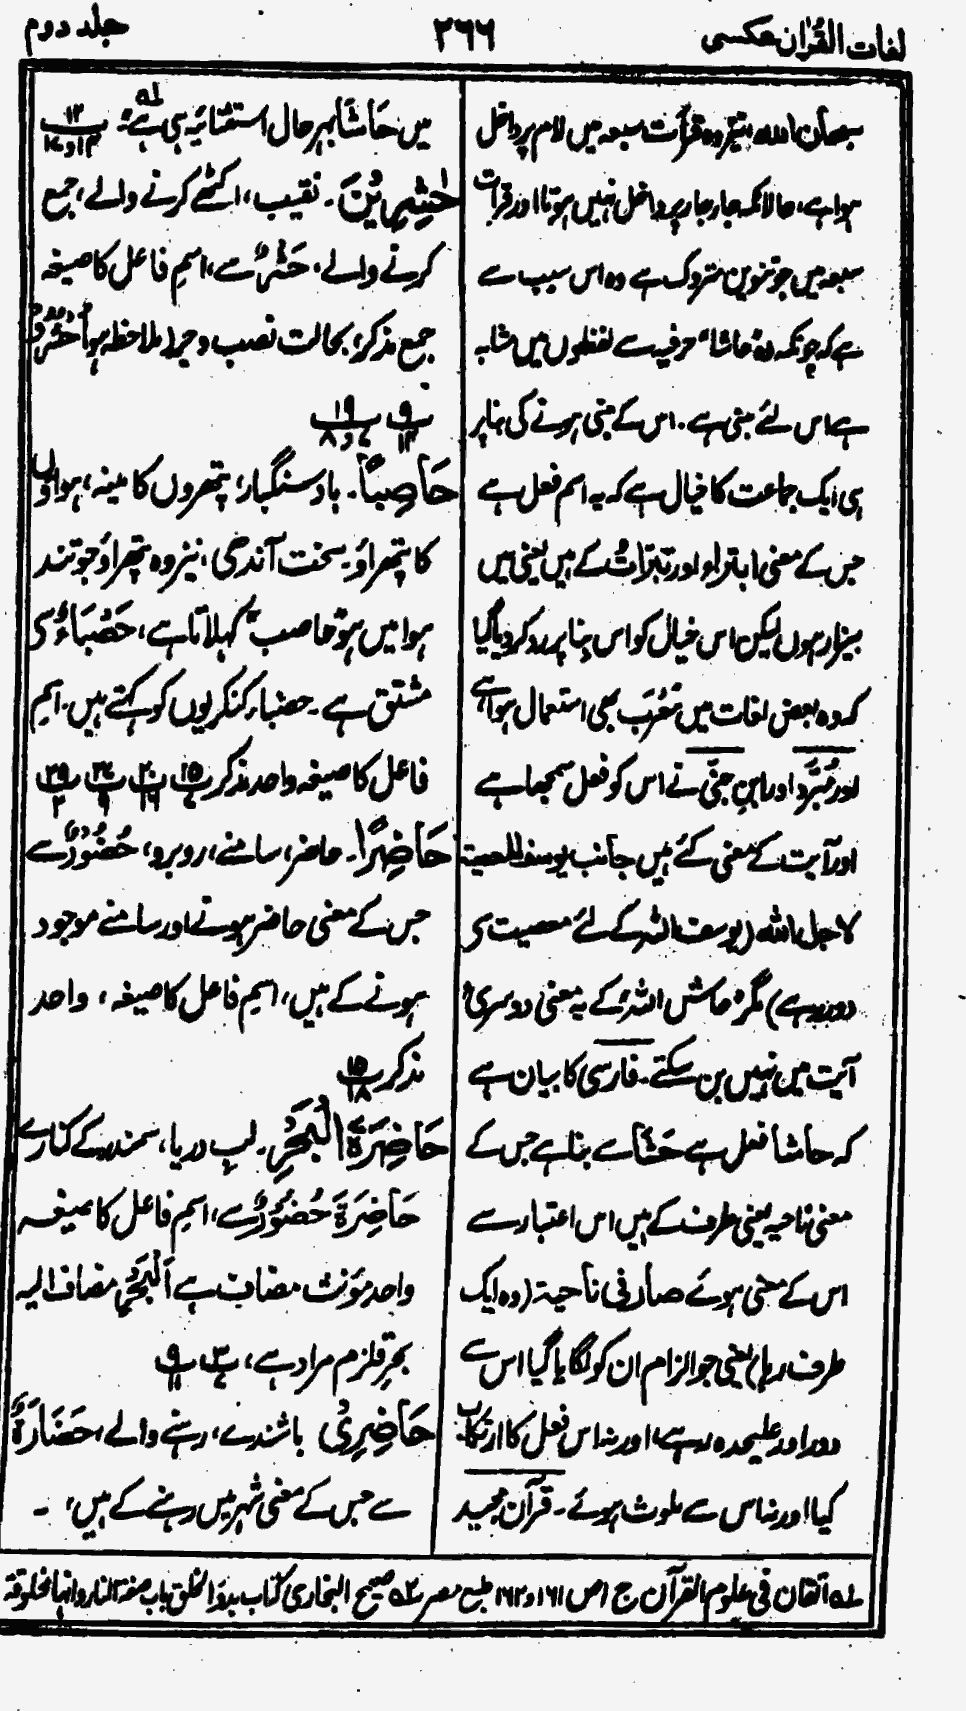 لغات القرآن عکسی
۲۶۶
جلد دوم
سبحان اللہ، نیز وہ قرأت سبعہ میں لام پر داخل
ہوا ہے، حالانکہ جار جار پر داخل نہیں ہوتا اور قرات
سبعہ میں جو تنوین متروک ہے وہ اس سبب سے
ہے کہ چونکہ وہ حاشا حرفیہ سے لفظوں میں مشابہ
ہے اس لئے مبنی ہے۔ اس کے مبنی ہونے کی بنا پر
ہی ایک جماعت کا خیال ہے کہ یہ اسم فعل ہے
جس کے معنی ابترأ اور تبرّأت کے ہیں یعنی میں
بیزار ہوں لیکن اس خیال کو اس بنا پر رد کر دیا گیا
کہ وہ بعض لغات میں معرب بھی استعمال ہوا ہے
اور مُبَرَّد اور ابنِ جنّی نے اس کو فعل سمجھا ہے
اور آیت کے معنی کئے ہیں جانب یوسف المعصیۃ
لاجل اللہ (یوسف اللہ کے لئے معصیت سے
دور رہے) مگر حاش للہ کے یہ معنی دوسری
آیت میں نہیں بن سکتے۔ فارسی کا بیان ہے
کہ حاشا فعل ہے حَشَا سے بنا ہے جس کے
معنی ناحیہ یعنی طرف کے ہیں اس اعتبار سے
اس کے معنی ہوئے صار فی ناحیۃ (وہ ایک
طرف رہا) یعنی جو الزام ان کو لگایا گیا اس سے
دور اور علیحدہ رہے، اور نہ اس فعل کا ارتکاب
کیا اور نہ اس سے ملوث ہوئے۔ قرآن مجید
میں حَاشَا بہر حال استثنائیہ ہی ہے لہ پ۱۲ ۱۴و۱۷
حٰشِرِیْنَ۔ نقیب، اکٹھے کرنے والے، جمع
کرنے والے، حَشْرٌ سے، اسمِ فاعل کا صیغہ
جمع مذکر، بحالت نصب و جر (ملاحظہ ہو اُحْشُرُوْا)
پ۹ ۱۴ پ۱۹ ۷و۸
حَاصِبًا۔ بادِ سنگبار، پتھروں کا مینہ، ہواؤں
کا پتھراؤ۔ سخت آندھی، نیز وہ پتھراؤ جو تند
ہوا میں ہو حاصب کہلاتا ہے، حَصْبَاءُ سے
مشتق ہے۔ حصباء کنکریوں کو کہتے ہیں۔ اسمِ
فاعل کا صیغہ واحد مذکر پ۱۵ ۷ پ۲۰ ۱۶ پ۲۷ ۹ پ۲۹ ۲
حَاضِرًا۔ حاضر، سامنے، روبرو، حُضُوْرٌ سے
جس کے معنی حاضر ہونے اور سامنے موجود
ہونے کے ہیں، اسمِ فاعل کا صیغہ، واحد
مذکر پ۱۵ ۱۸
حَاضِرَۃَ الْبَحْرِ۔ لبِ دریا، سمندر کے کنارے
حَاضِرَۃَ حُضُوْرٌ سے، اسمِ فاعل کا صیغہ
واحد مؤنث مضاف ہے اَلْبَحْرِ مضاف الیہ
بحرِ قلزم مراد ہے، پ۳ ۷ پ۹ ۱۱
حَاضِرِی باشندے، رہنے والے، حَضَارَۃٌ
سے جس کے معنی شہر میں رہنے کے ہیں،۔
لہ اتقان فی علوم القرآن ج ۱ ص ۱۶۱و۱۶۲ طبع مصر ۲ہ صحیح البخاری کتاب بدؤ الخلق باب صفۃ النار وانہا مخلوقۃ